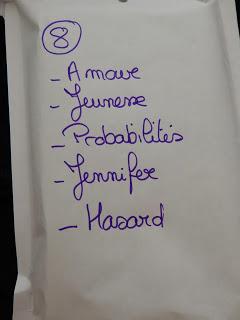 8
- Amour
- Jeunesse
- Probabilités
- Jennifer
- Hasard